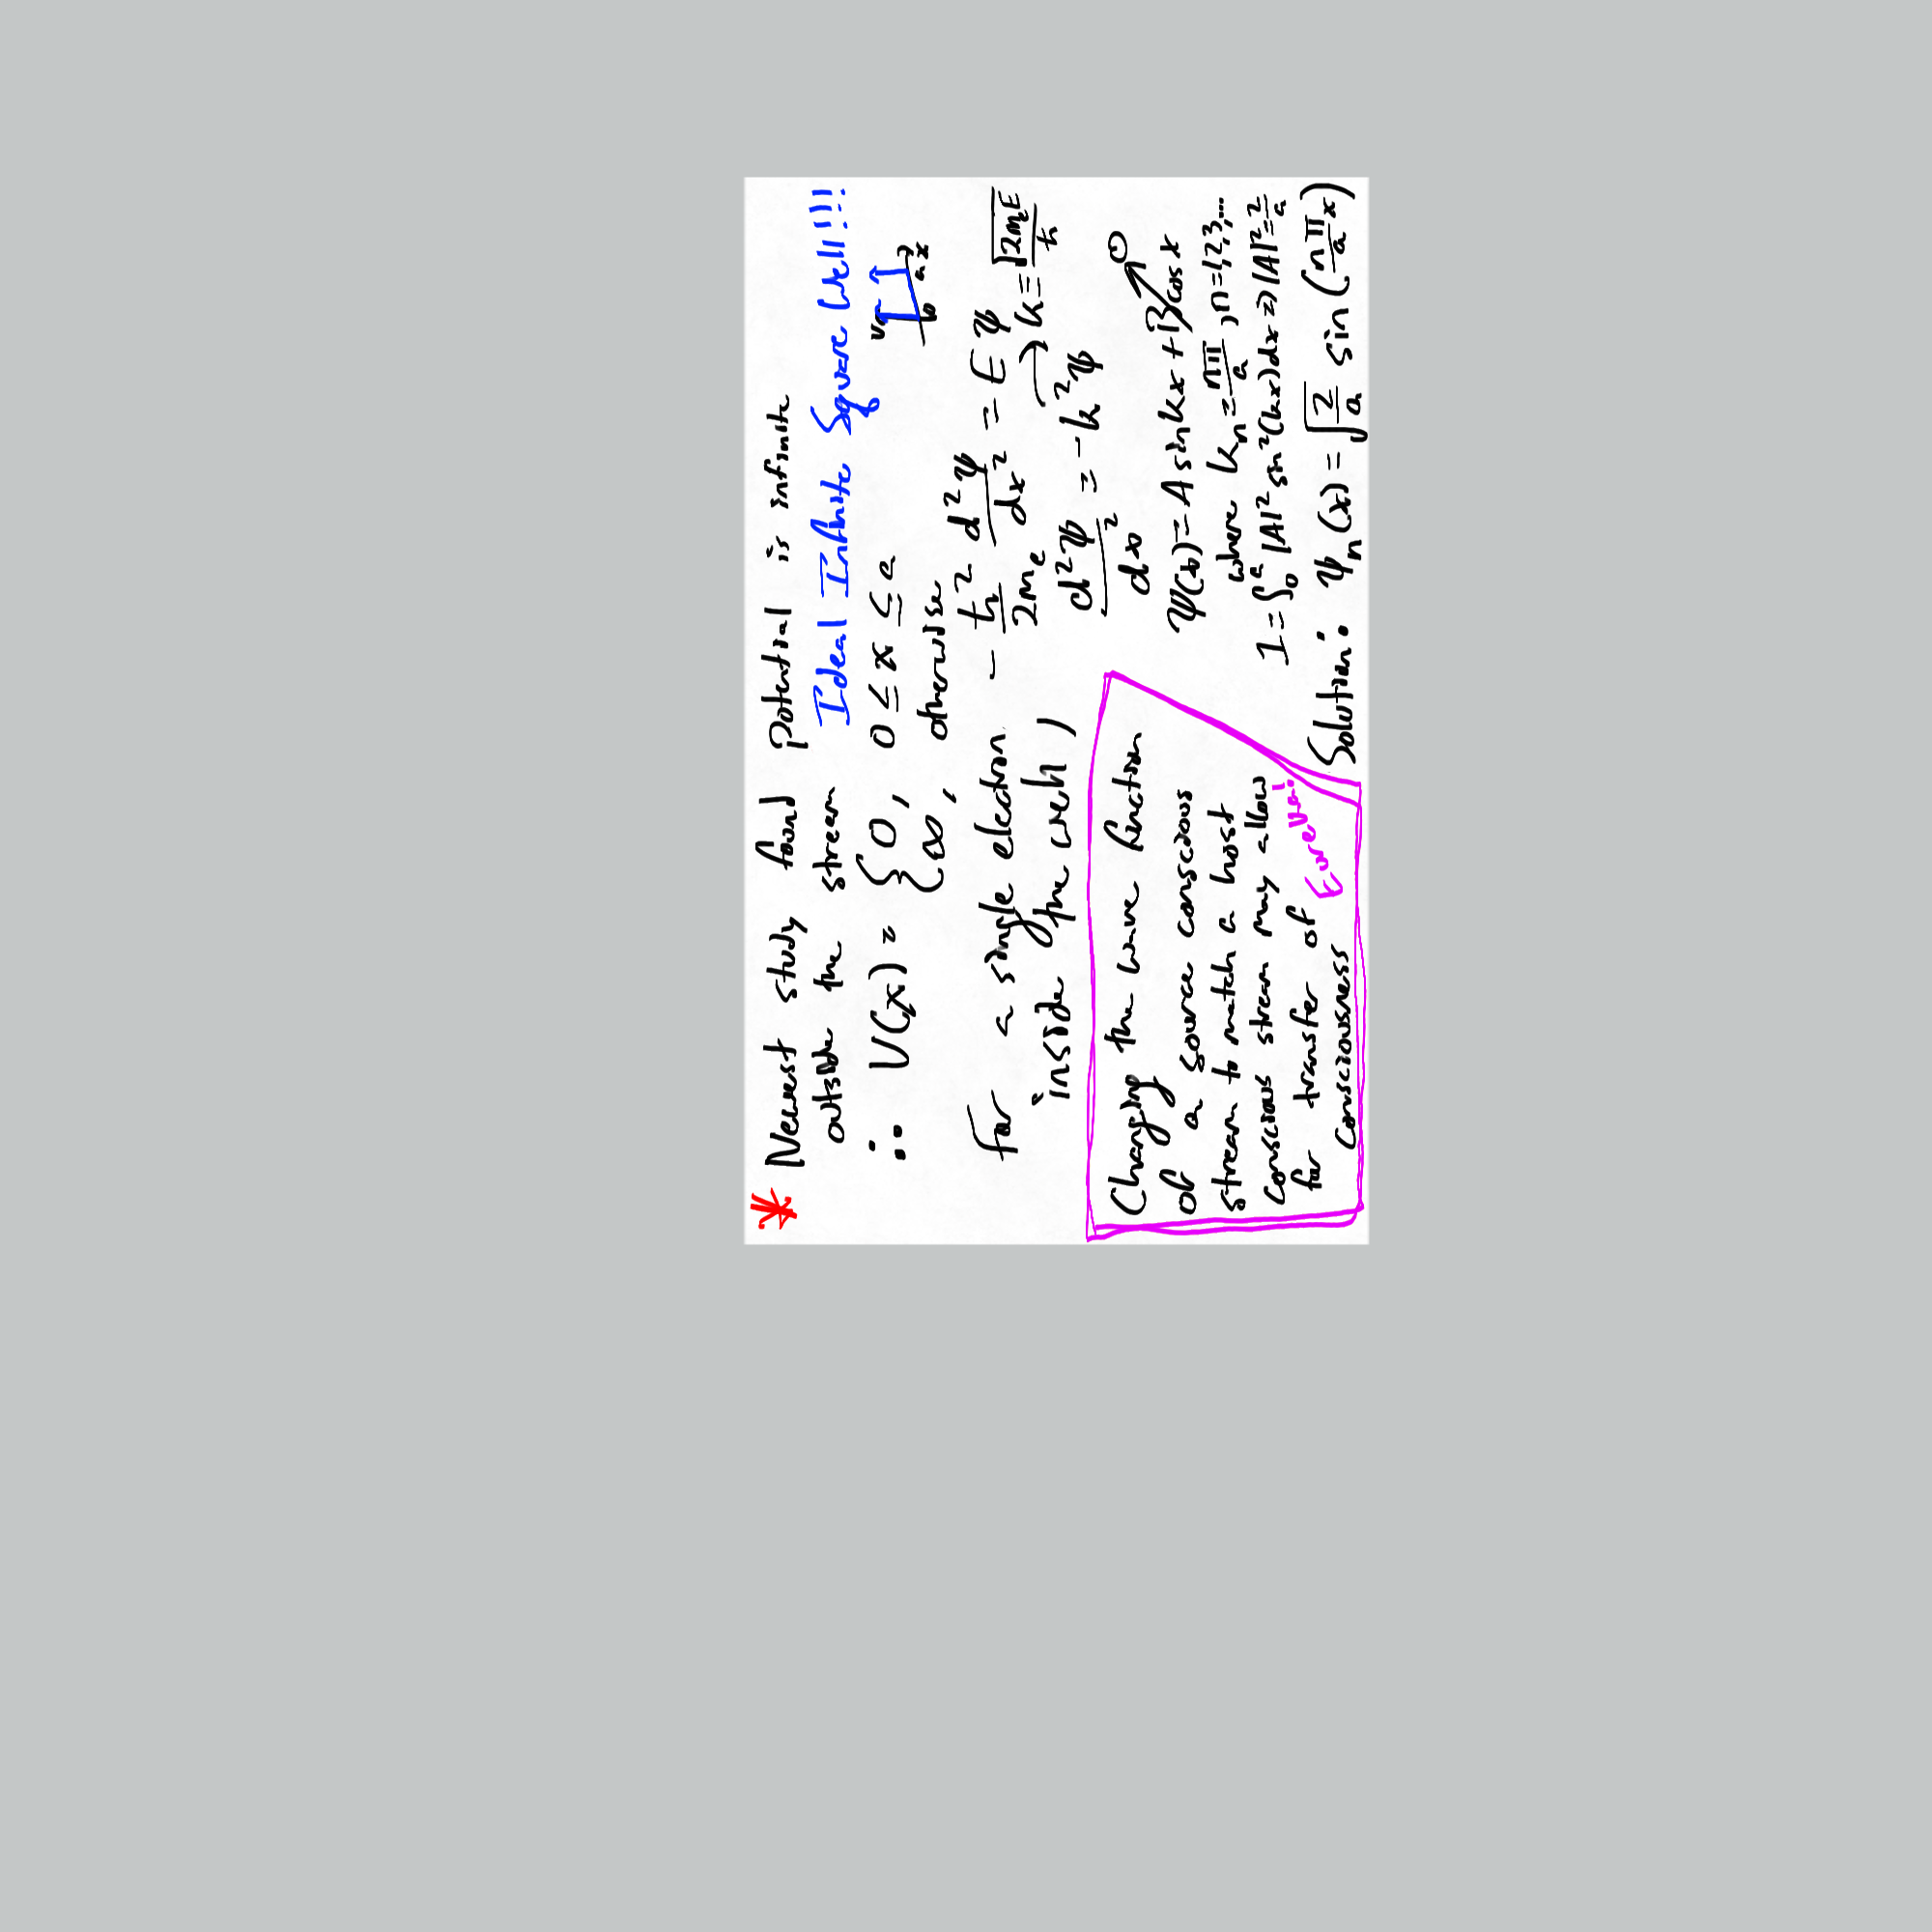 * Newest study found potential is infinite
outside the stream Ideal Infinite Square Well!!!
∴ V(x) = { 0, 0 ≤ x ≤ a
∞, otherwise
V
0 a x
For a single electron
inside the well)
-ħ²/2mₑ d²ψ/dx² = Eψ
k = √2mₑE/ħ
d²ψ/dx² = -k²ψ
ψ(x) = A sin kx + B cos x 0
where kn = nπ/a, n=1,2,3,...
1 = ∫₀ᵃ |A|² sin²(kx)dx ⇒ |A|² = 2/a
Solution: ψn(x) = √2/a sin(nπ/a x)
Changing the wave function
of a source conscious
stream to match a host
conscious stream may allow
for transfer of
consciousness
Eureka!